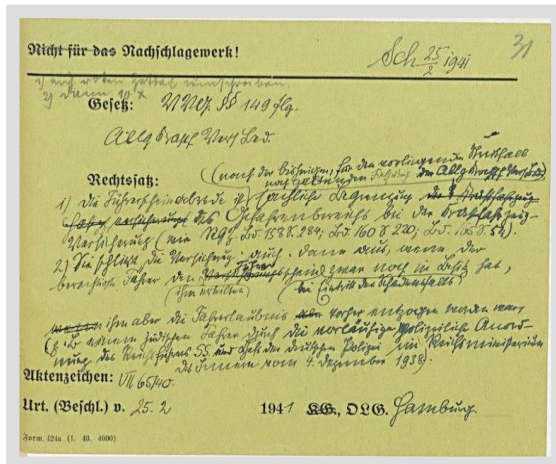 Nicht für das Nachschlagewerk!
Sch 25/2 1941
31
1) auf roten Zettel umschreiben
2) dann 10 x
Gesetz: VVG. §§ 149 flg.
Allg Kraft Vers Bed.
(nach der bisherigen, für den vorliegenden Streitfall
noch geltenden Fassung der Allg Kraft Vers Bed)
Rechtssatz:
1) Die Führerscheinklausel ist sachliche Begrenzung der Kraftfahrzeug-
des Gefahrenbereichs bei der Kraftfahrzeug-
Versicherung (wie RGZ Bd. 158 S. 284; Bd. 160 S. 220; Bd. 165 S. 59).
2) Sie schließt die Versicherung auch dann aus, wenn der
berechtigte Fahrer den Führerschein zwar noch in Besitz hat,
(ihm erteilten) (bei Eintritt des Schadensfalls)
ihm aber die Fahrerlaubnis vorher entzogen worden war
(z. B. einem jüdischen Fahrer durch die vorläufige polizeiliche Anord-
nung des Reichsführers SS und Chefs der deutschen Polizei im Reichsministerium
des Innern vom 3. Dezember 1938).
Aktenzeichen: VII 65/40.
Urt. (Beschl.) v. 25.2 1941 KG., OLG. Hamburg.
Form. 424a (1. 40. 4000)